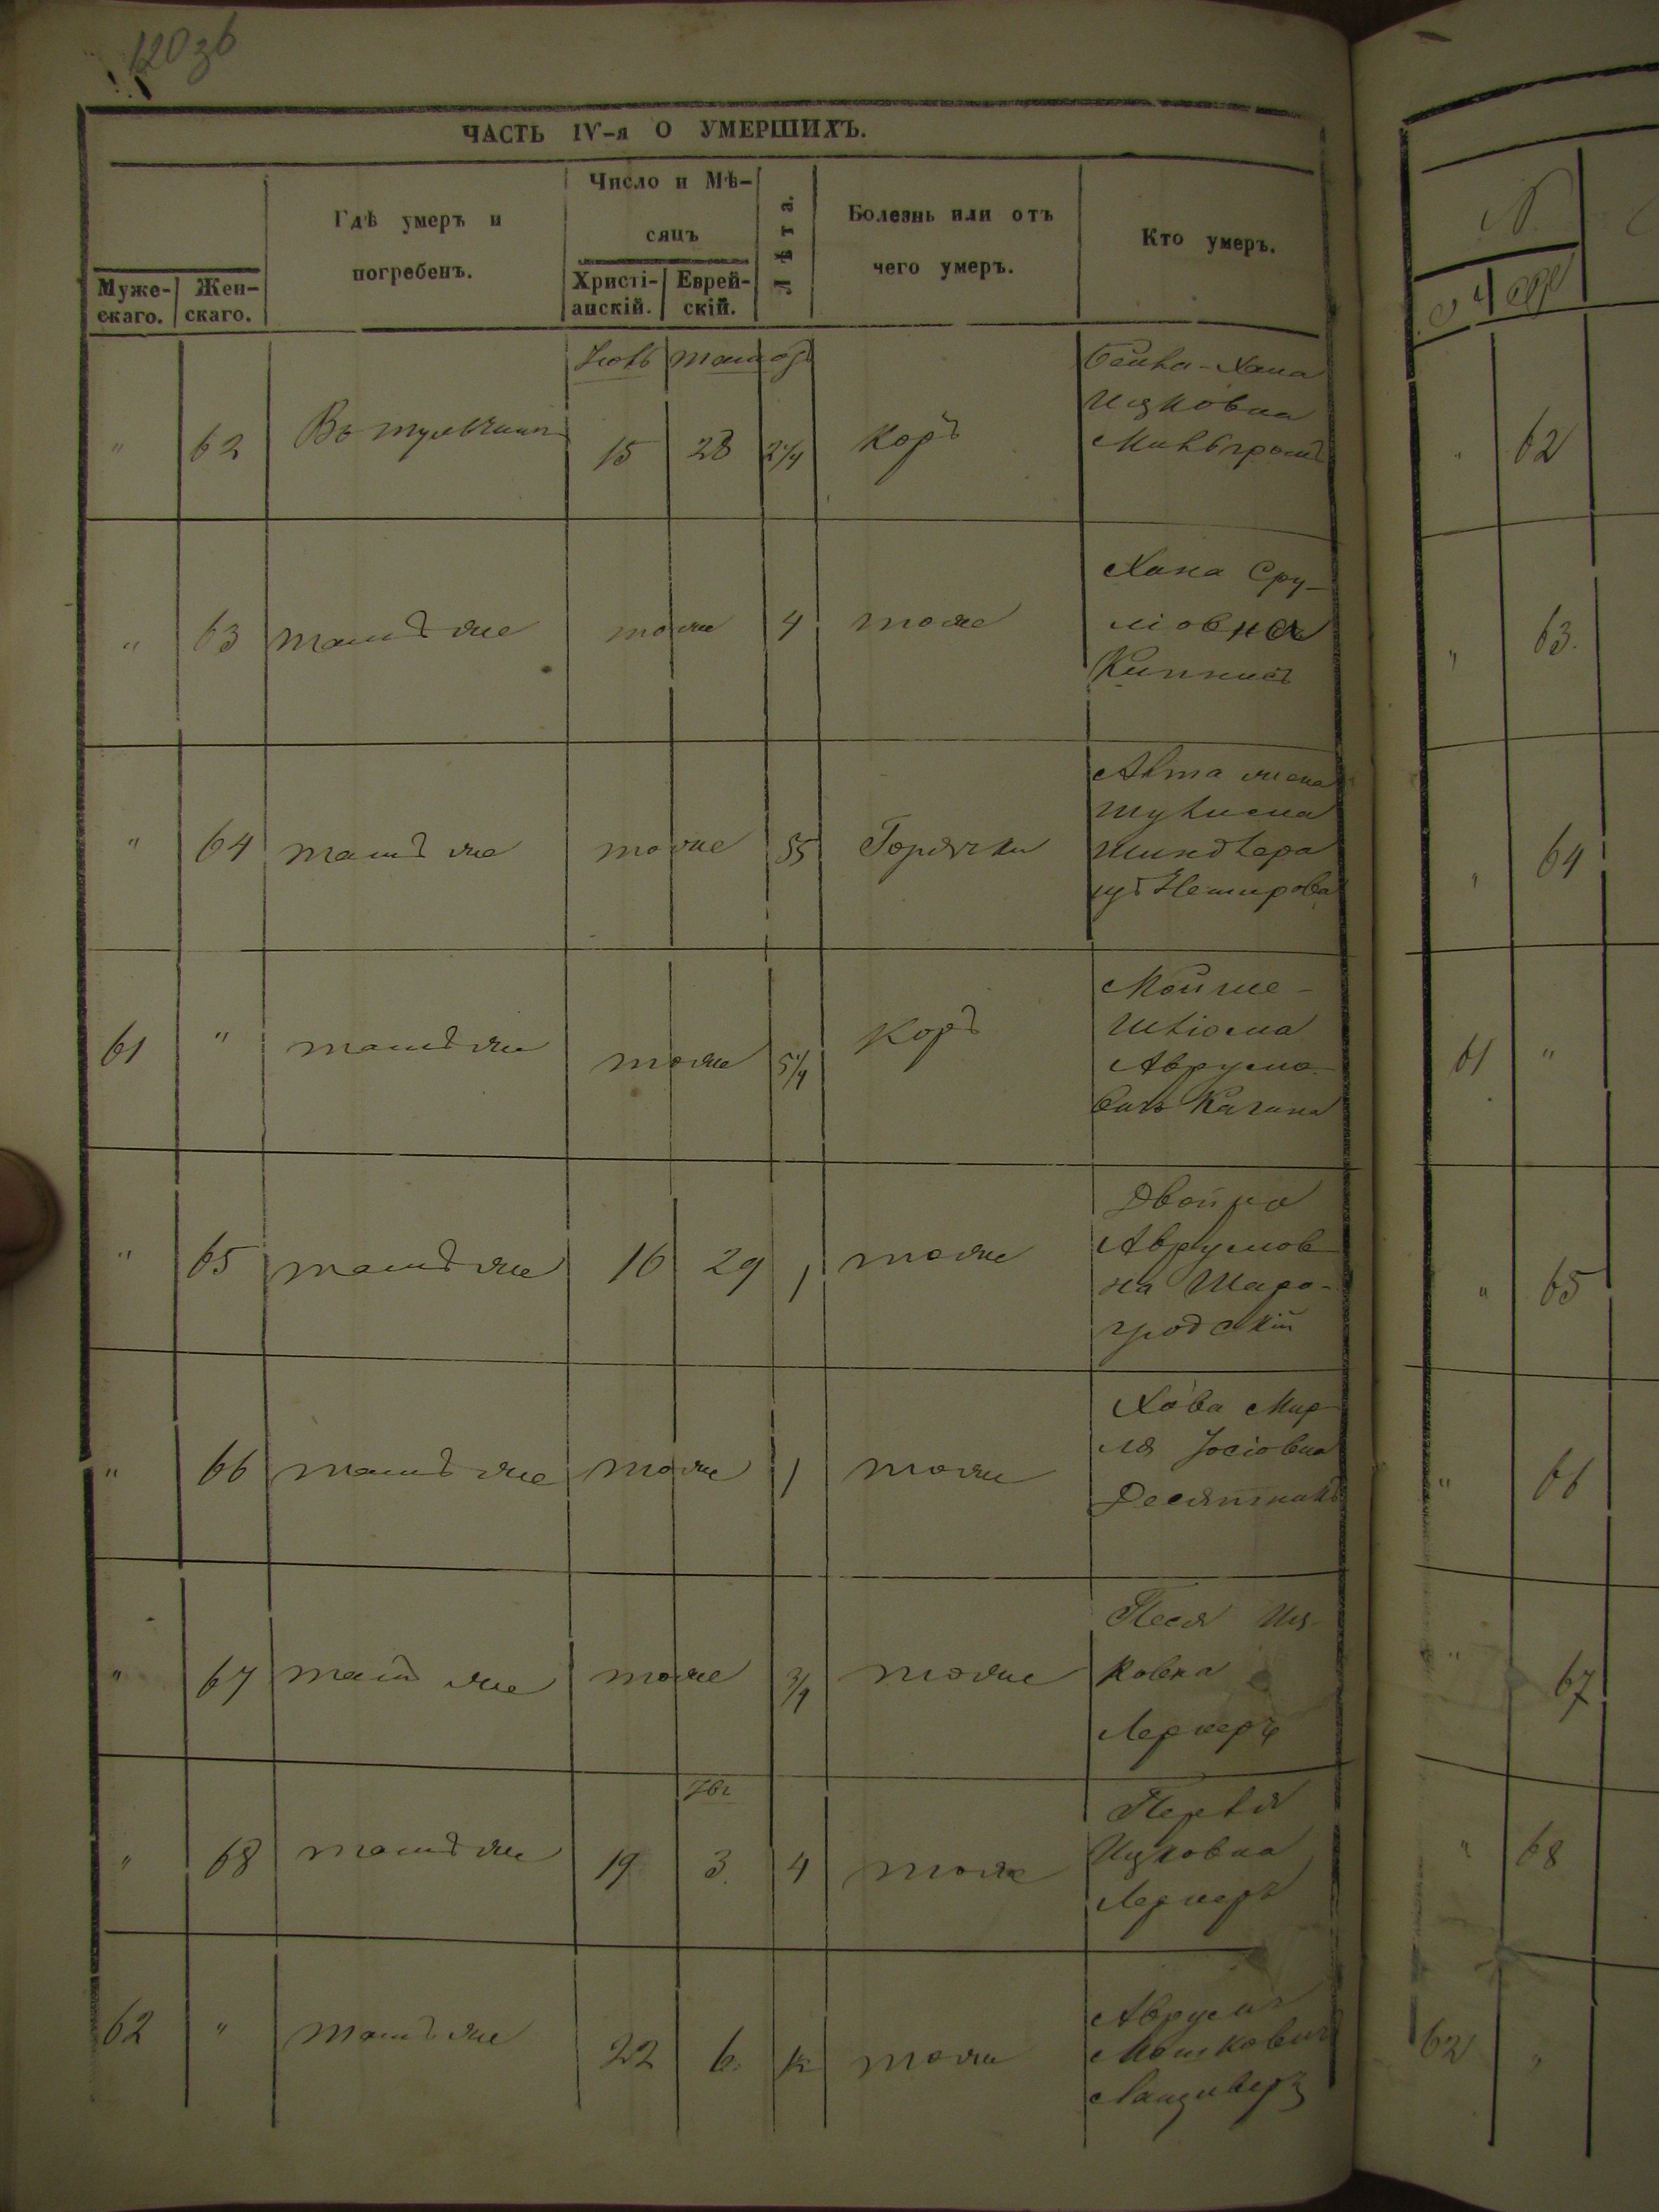 120 зв
ЧАСТЬ IV-я О УМЕРШИХЪ.
Муже-скаго. Жен-скаго. Гдѣ умеръ и погребенъ. Число и Мѣ-сяцъ Христі-анскій. Еврей-скій. Лѣта. Болезнь или отъ чего умеръ. Кто умеръ.
" 62 Въ тульчинѣ 15 28 2 1/4 Коръ
Ицковна
" 63 тамъ же тоже 4 тоже Хана Сру-
ліовна
Кипнисъ
" 64 тамъ же тоже 55 Горячки
жена
Шмулиема
Шиндлера
изъ Немирова
61 " тамъ же тоже 5 1/4 Коръ Мойше-
Шлёма
Аврумо-
вичъ Кагана
" 65 тамъ же 16 29 1 тоже Двойра
Аврумов-
на Шаро-
городскій
" 66 тамъ же тоже 1 тоже Хова Мир-
ля Іосіовна
Десятникъ
" 67 тамъ же тоже 3/4 тоже Песя Иц-
ковна
Лернеръ
" 68 тамъ же 19 3. 4 тоже Перля
Ицковна
Лернеръ
62 " тамъ же 22 6. тоже Аврумъ
Мошковичъ
N.
М Ж
" 62
" 63.
" 64
61 "
" 65
" 66
" 67
" 68
62 "